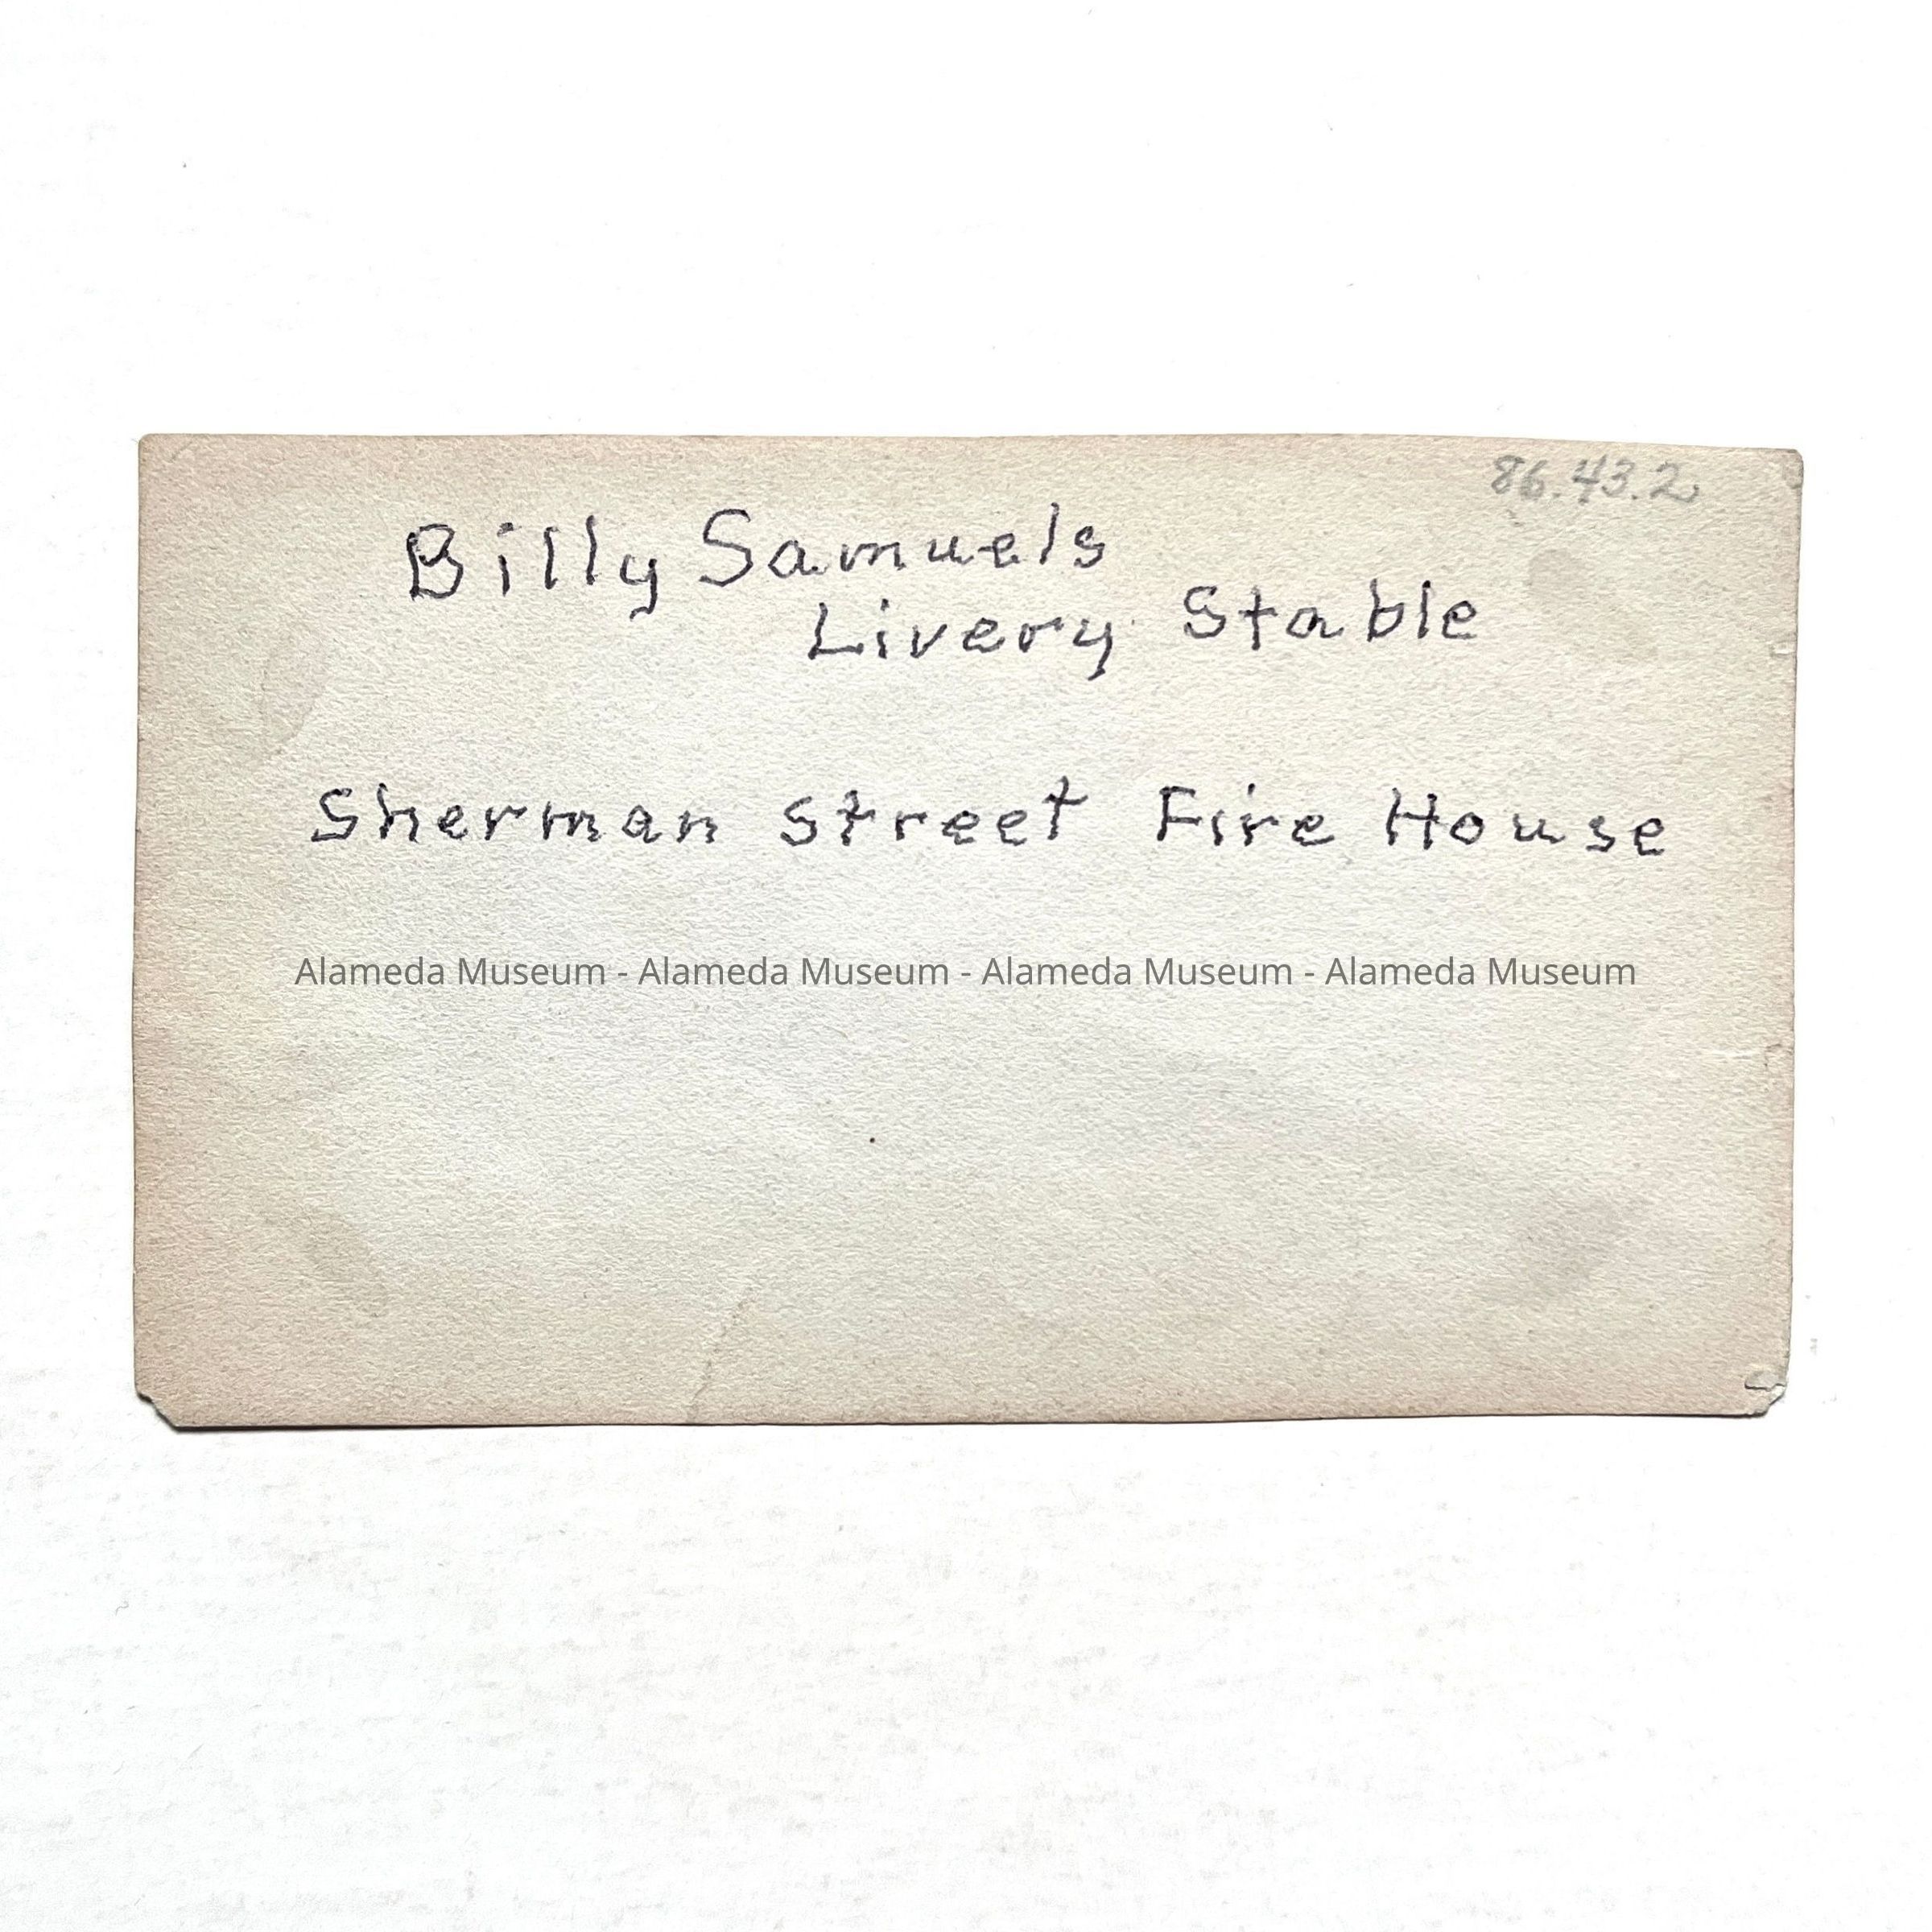 86.43.2
Billy Samuels
Livery Stable
Sherman Street Fire House
Alameda Museum - Alameda Museum - Alameda Museum - Alameda Museum